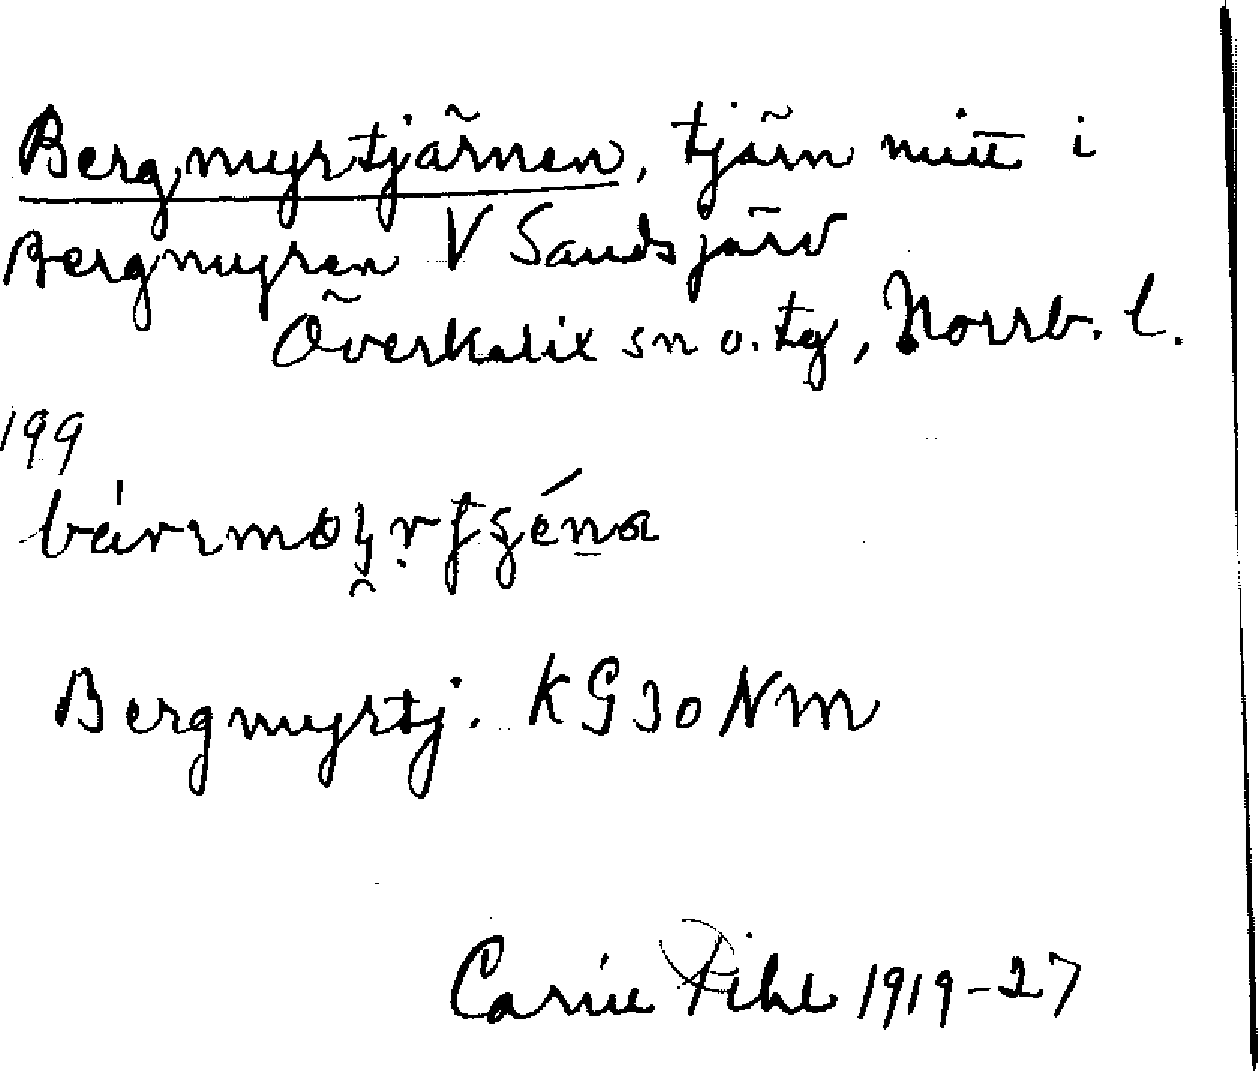 Bergmyrtjärnen, tjärn mitt i
Bergmyren V Sandsjärv
Överkalix sn o. tg, Norrb. l.
199
Bergmyrtj. KG30NM
Carin Pihl 1919-27